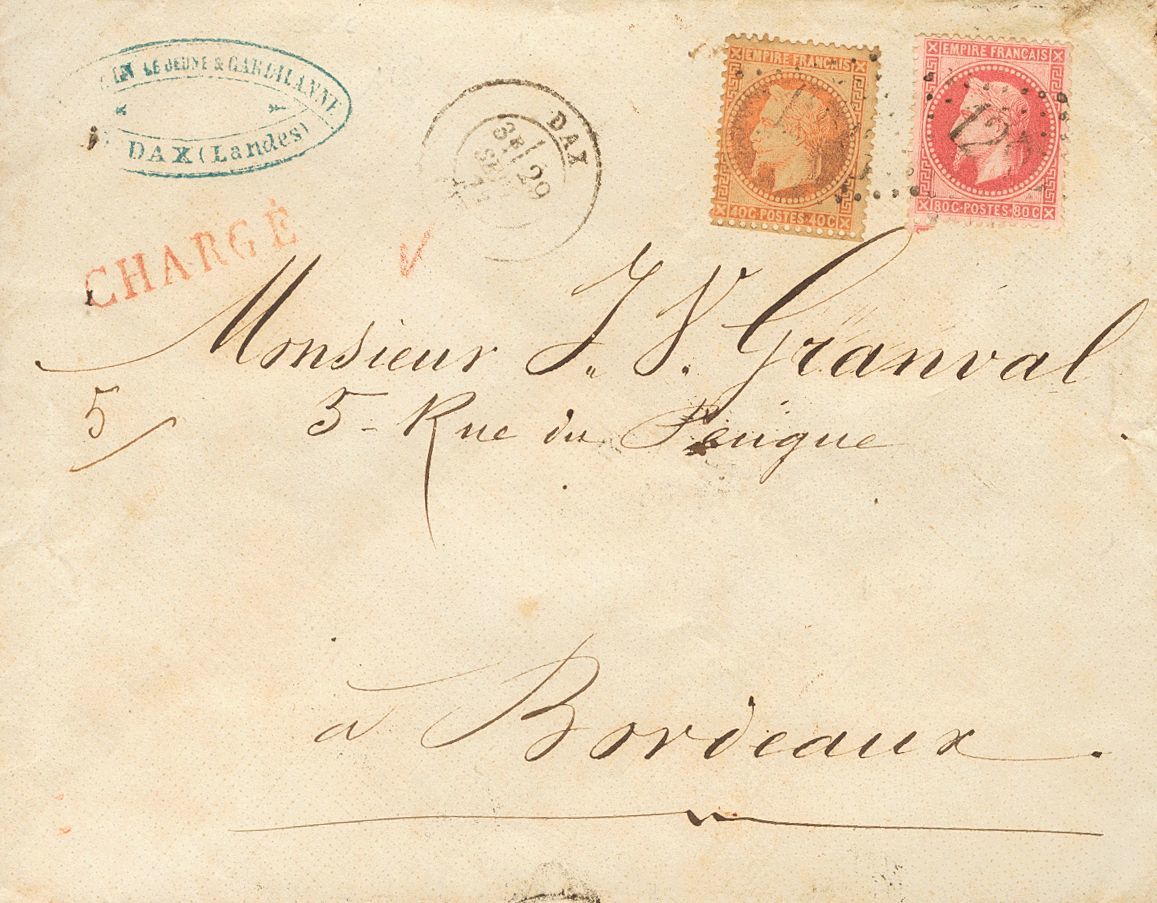 LE JEUNE & GARDILANNE
DAX (Landes)
DAX
3E/ 29
SEPT
EMPIRE FRANÇAIS
40C·POSTES·40C
EMPIRE FRANÇAIS
80C·POSTES·80C
CHARGÉ
Monsieur J. V. Granval
5/
5 - Rue du Peugue
à Bordeaux.